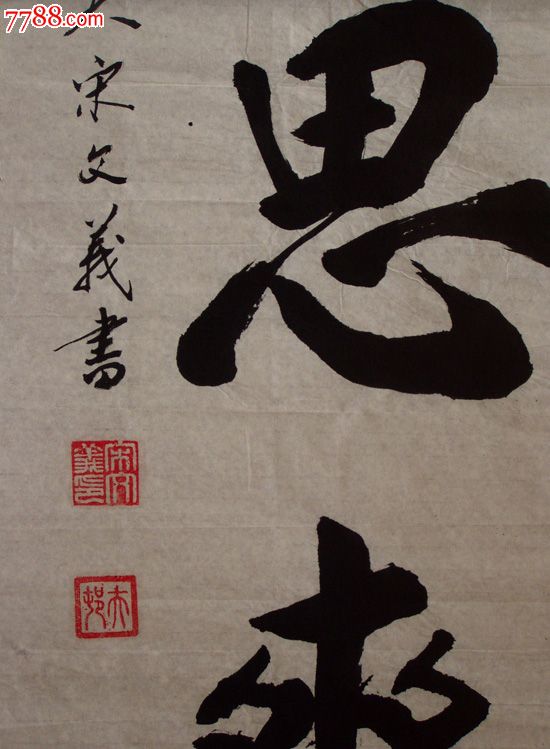 7788.com
思來
宋文義書
宋文
義印